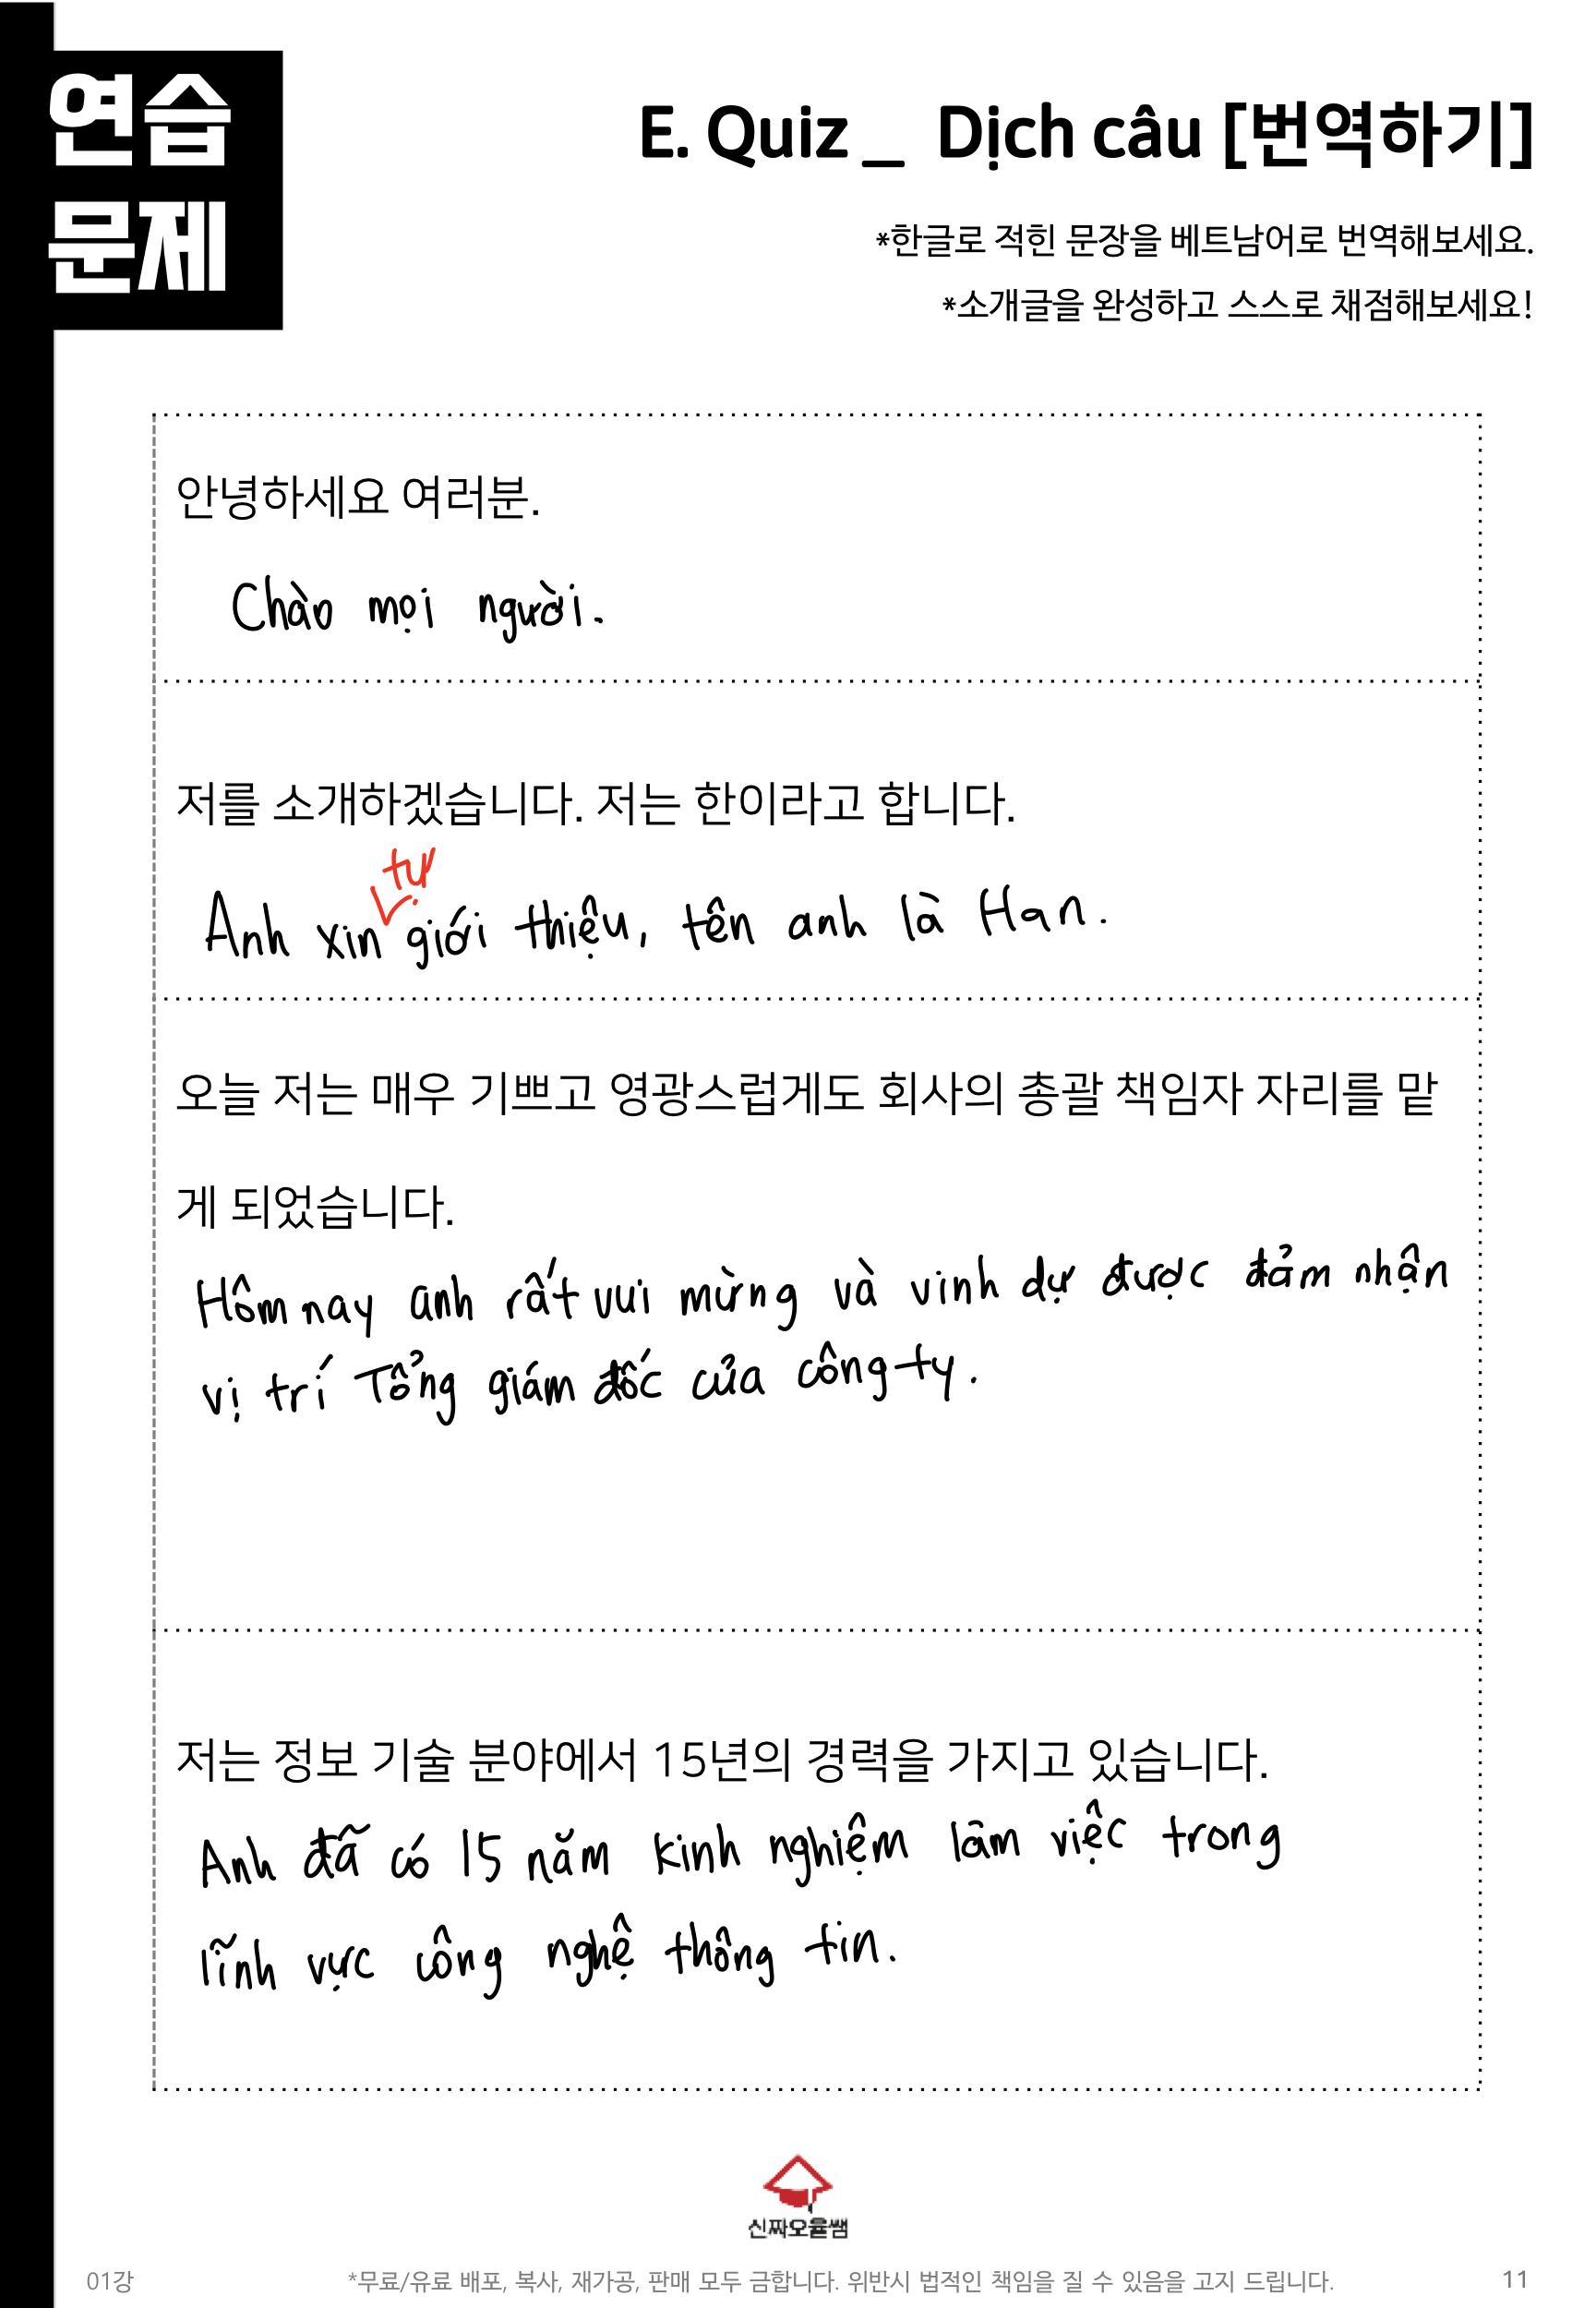 연습
문제
E. Quiz _ Dịch câu [번역하기]
*한글로 적힌 문장을 베트남어로 번역해보세요.
*소개글을 완성하고 스스로 채점해보세요!
안녕하세요 여러분.
Chào mọi người.
저를 소개하겠습니다. 저는 한이라고 합니다.
tự
Anh xin giới thiệu, tên anh là Han.
오늘 저는 매우 기쁘고 영광스럽게도 회사의 총괄 책임자 자리를 맡
게 되었습니다.
Hôm nay anh rất vui mừng và vinh dự được đảm nhận
vị trí Tổng giám đốc của công ty.
저는 정보 기술 분야에서 15년의 경력을 가지고 있습니다.
Anh đã có 15 năm kinh nghiệm làm việc trong
lĩnh vực công nghệ thông tin.
신짜오율쌤
01강
*무료/유료 배포, 복사, 재가공, 판매 모두 금합니다. 위반시 법적인 책임을 질 수 있음을 고지 드립니다.
11